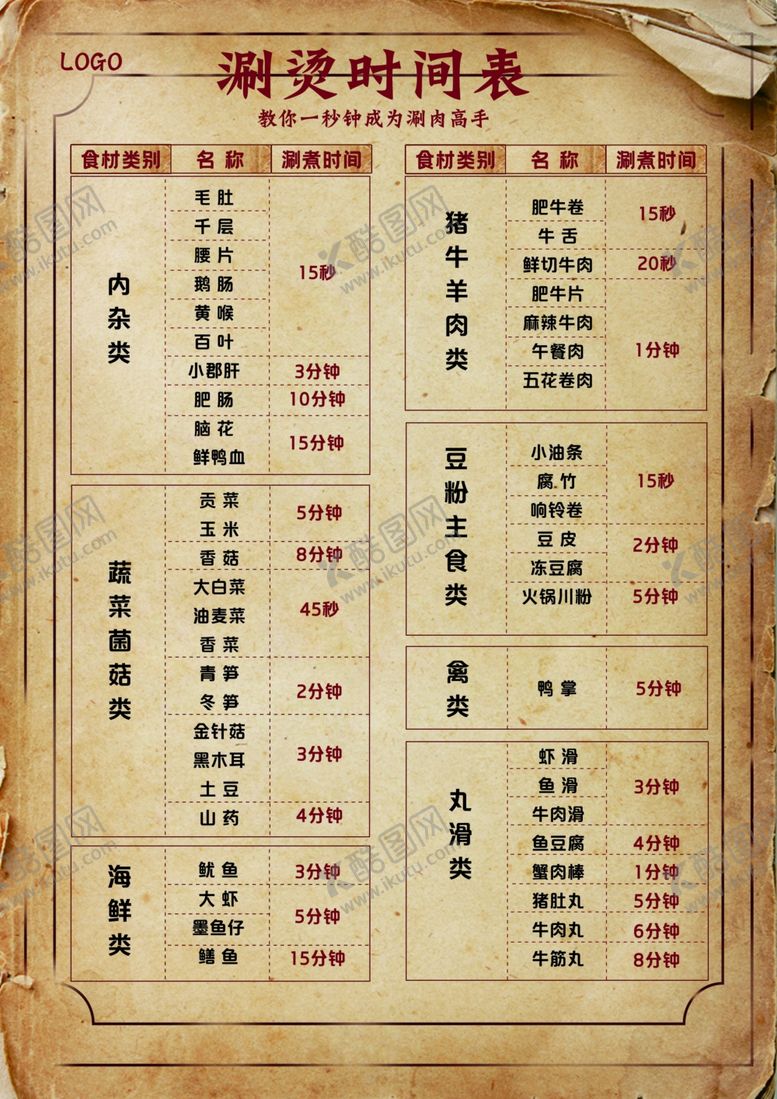 LOGO
涮烫时间表
教你一秒钟成为涮肉高手
食材类别 名称 涮煮时间
内杂类
毛肚
千层
腰片
鹅肠
黄喉
百叶
15秒
小郡肝 3分钟
肥肠 10分钟
脑花
鲜鸭血
15分钟
蔬菜菌菇类
贡菜
玉米
5分钟
香菇 8分钟
大白菜
油麦菜
香菜
45秒
青笋
冬笋
2分钟
金针菇
黑木耳
土豆
3分钟
山药 4分钟
海鲜类
鱿鱼 3分钟
大虾
墨鱼仔
5分钟
鳝鱼 15分钟
食材类别 名称 涮煮时间
猪牛羊肉类
肥牛卷
牛舌
15秒
鲜切牛肉 20秒
肥牛片
麻辣牛肉
午餐肉
五花卷肉
1分钟
豆粉主食类
小油条
腐竹
响铃卷
15秒
豆皮
冻豆腐
2分钟
火锅川粉 5分钟
禽类
鸭掌 5分钟
丸滑类
虾滑
鱼滑
牛肉滑
3分钟
鱼豆腐 4分钟
蟹肉棒 1分钟
猪肚丸 5分钟
牛肉丸 6分钟
牛筋丸 8分钟
酷图网
www.ikutu.com